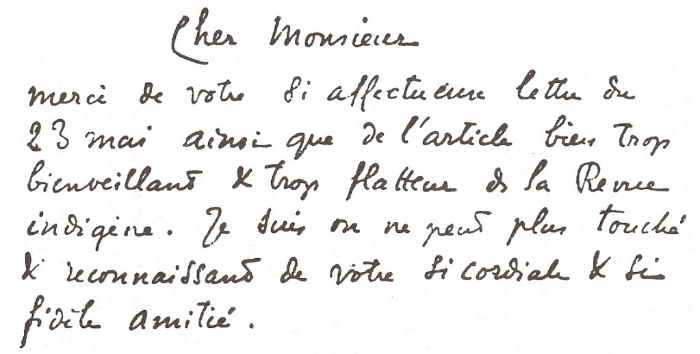 Cher Monsieur
merci de votre si affectueuse lettre du
23 mai ainsi que de l'article bien trop
bienveillant & trop flatteur de la Revue
indigène. Je suis on ne peut plus touché
& reconnaissant de votre si cordiale & si
fidèle amitié.